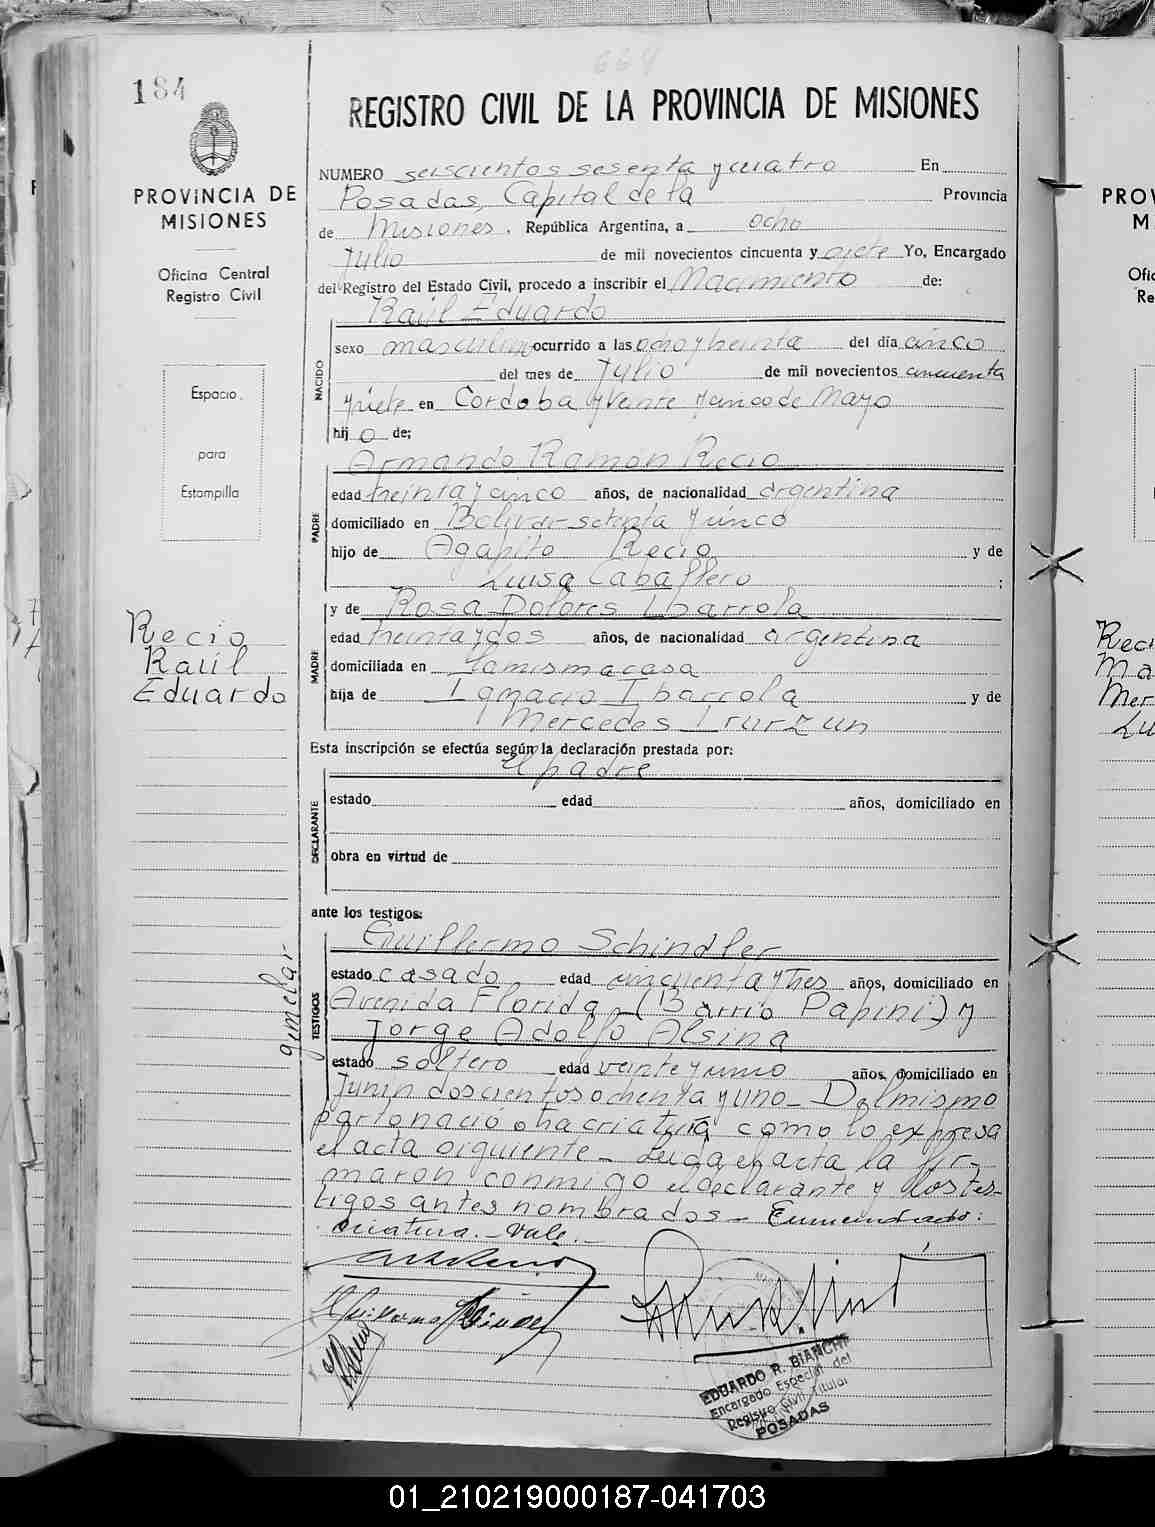 184
664
REGISTRO CIVIL DE LA PROVINCIA DE MISIONES
PROVINCIA DE
MISIONES
Oficina Central
Registro Civil
Espacio
para
Estampilla
Recio
Raúl
Eduardo
gimelar
NUMERO seiscientos sesenta y cuatro En
Posadas, Capital de la Provincia
de Misiones. República Argentina, a ocho
Julio de mil novecientos cincuenta y siete Yo, Encargado
del Registro del Estado Civil, procedo a inscribir el Nacimiento de:
Raúl Eduardo
NACIDO
sexo masculino ocurrido a las ocho y treinta del día cinco
del mes de Julio de mil novecientos cincuenta
y siete en Cordoba y veinte y cinco de Mayo
hij o de;
Armando Ramon Recio
PADRE
edad treinta y cinco años, de nacionalidad argentina
domiciliado en Bolivar setenta y cinco
hijo de Agapito Recio y de
Luisa Caballero ;
y de Rosa Dolores Ibarrola
MADRE
edad treinta y dos años, de nacionalidad argentina
domiciliada en la misma casa
hija de Ignacio Ibarrola y de
Mercedes Irurzun
Esta inscripción se efectúa según la declaración prestada por:
el padre
DECLARANTE
estado edad años, domiciliado en
obra en virtud de
ante los testigos:
Guillermo Schindler
TESTIGOS
estado casado edad cincuenta y tres años, domiciliado en
Avenida Florida - (Barrio Papini) y
Jorge Adolfo Alsina
estado soltero edad veinte y uno años, domiciliado en
Junin doscientos ochenta y uno - Del mismo
parto nació otra criatura como lo expresa
el acta siguiente - Leida el acta la fir-
maron conmigo el declarante y los tes-
tigos antes nombrados - Enmendado:
criatura. - Vale. -
EDUARDO R. BIANCHI
Encargado Especial del
Registro Civil Titular
POSADAS
PROV
M
Ofic
Re
Reci
Ma
Mer
Lu
01_210219000187-041703